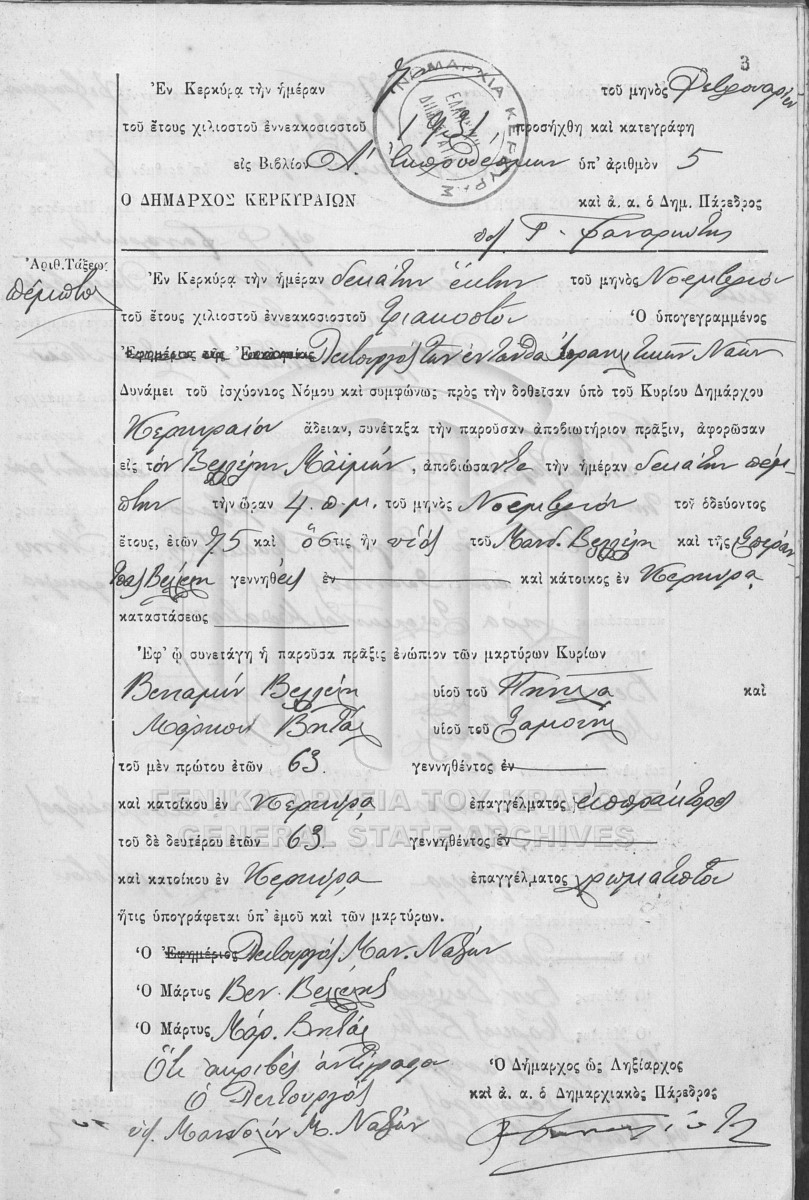 3
Ἐν Κερκύρᾳ τὴν ἡμέραν 7 τοῦ μηνὸς Φεβρουαρίου
τοῦ ἔτους χιλιοστοῦ ἐννεακοσιοστοῦ 1931, προσήχθη καὶ κατεγράφη
εἰς Βιβλίον Α΄ ἐκπροθέσμων ὑπ' ἀριθμὸν 5
Ο ΔΗΜΑΡΧΟΣ ΚΕΡΚΥΡΑΙΩΝ καὶ ἀ. α. ὁ Δημ. Πάρεδρος
ΝΟΜΑΡΧΙΑ ΚΕΡΚΥΡΑΣ
ΕΛΛΗΝΙΚΗ ΔΗΜΟΚΡΑΤΙΑ
Ἀριθ. Τάξεως
πέμπτος
Ἐν Κερκύρᾳ τὴν ἡμέραν δεκάτην ἕκτην τοῦ μηνὸς Νοεμβρίου
τοῦ ἔτους χιλιοστοῦ ἐννεακοσιοστοῦ τριακοστοῦ Ὁ ὑπογεγραμμένος
Ἐφημέριος τῆς Ἐνορίας Λειτουργὸς τῶν ἐνταῦθα Ἰσραηλιτικῶν Ναῶν
Δυνάμει τοῦ ἰσχύοντος Νόμου καὶ συμφώνως πρὸς τὴν δοθεῖσαν ὑπὸ τοῦ Κυρίου Δημάρχου
Κερκυραίων ἄδειαν, συνέταξα τὴν παροῦσαν ἀποβιωτήριον πρᾶξιν, ἀφορῶσαν
εἰς τὸν Βελλέλη Μαϊμών, ἀποβιώσαντα τὴν ἡμέραν δεκάτην πέμ-
πτην τὴν ὥραν 4 π.μ. τοῦ μηνὸς Νοεμβρίου τοῦ ὁδεύοντος
ἔτους, ἐτῶν 75 καὶ ὅστις ἦν υἱὸς τοῦ Μανδ. Βελλέλη καὶ τῆς
Βελλέλη γεννηθεὶς ἐν καὶ κάτοικος ἐν Κερκύρᾳ
καταστάσεως
Ἐφ' ᾧ συνετάγη ἡ παροῦσα πρᾶξις ἐνώπιον τῶν μαρτύρων Κυρίων
Βενιαμὶν Βελλέλη υἱοῦ τοῦ καὶ
Μάρκου Βητάλ υἱοῦ τοῦ Σαμουὴλ
τοῦ μὲν πρώτου ἐτῶν 63 γεννηθέντος ἐν
καὶ κατοίκου ἐν Κερκύρᾳ ἐπαγγέλματος εἰσπράκτορος
ΓΕΝΙΚΑ ΑΡΧΕΙΑ ΤΟΥ ΚΡΑΤΟΥΣ
GENERAL STATE ARCHIVES
τοῦ δὲ δευτέρου ἐτῶν 63 γεννηθέντος ἐν
καὶ κατοίκου ἐν Κερκύρᾳ ἐπαγγέλματος χρωματιστοῦ
ἥτις ὑπογράφεται ὑπ' ἐμοῦ καὶ τῶν μαρτύρων.
Ὁ Ἐφημέριος Λειτουργὸς Μαν. Ναζὼν
Ὁ Μάρτυς Βεν. Βελλέλης
Ὁ Μάρτυς Μάρ. Βητάλ
Ὅτι ἀκριβὲς ἀντίγραφον
Ὁ Λειτουργός
Ὁ Δήμαρχος ὡς Ληξίαρχος
καὶ ἀ. α. ὁ Δημαρχιακὸς Πάρεδρος